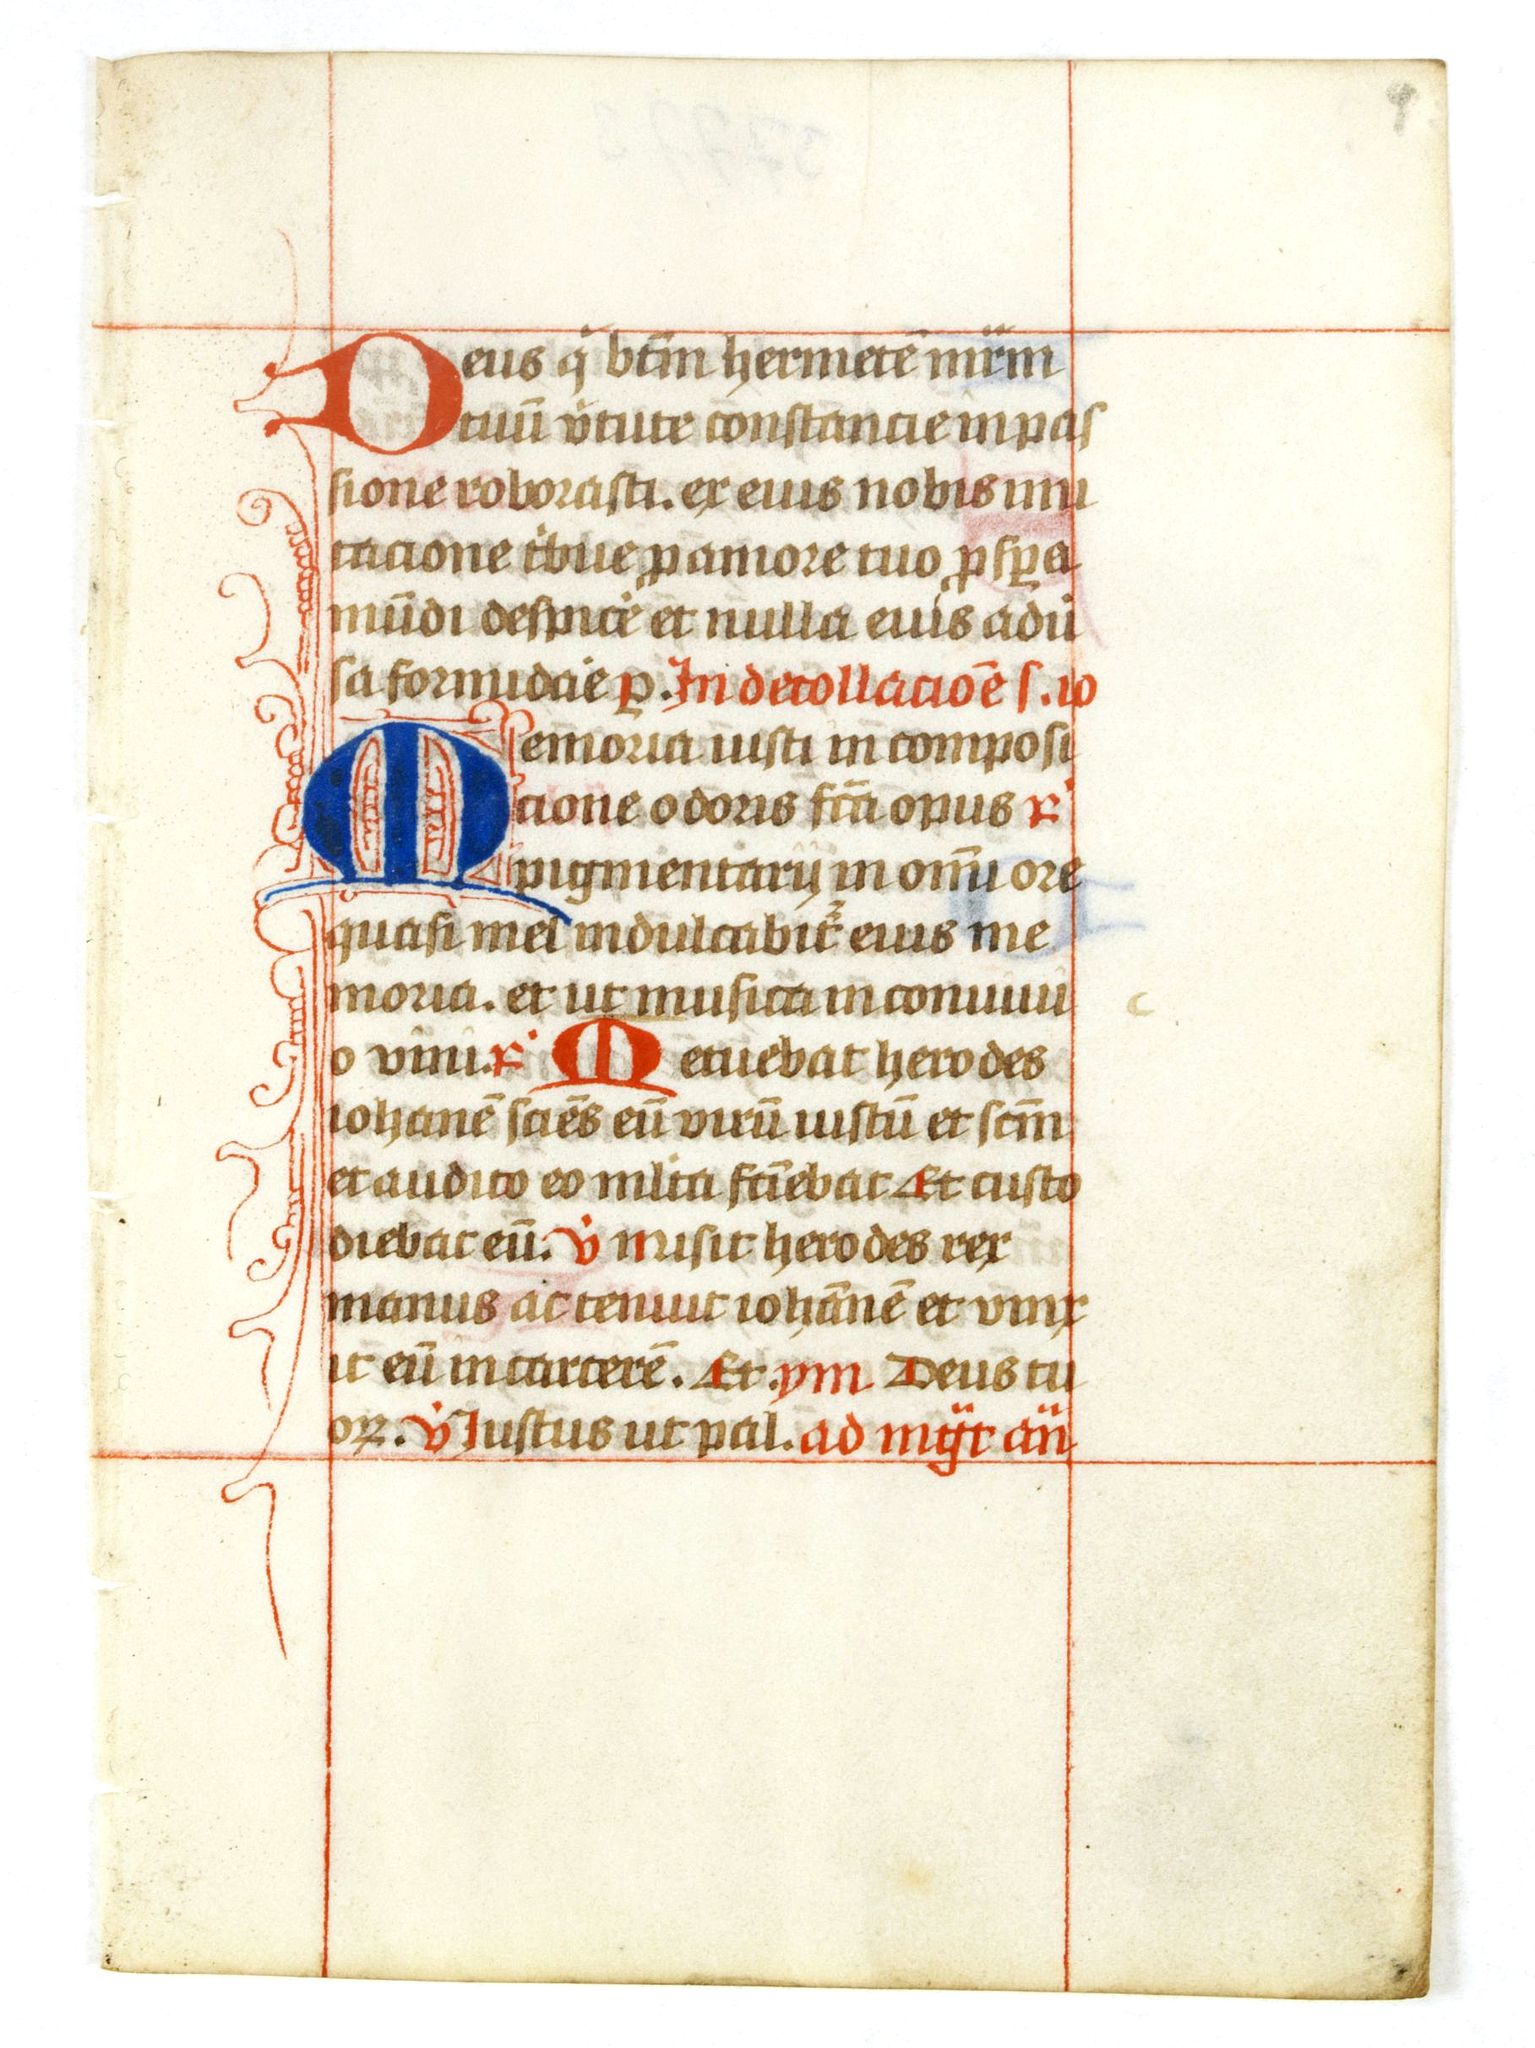 Deus qͥ btm̄ hermetē mr̄m
tuū v̓tute constancie in pas
sione roborasti. ex eius nobis imi
tacione tͥbue p̱ amore tuo p̱sp̱a
mūdi despicē et nulla eius adu̓
sa formidaē p̱. In decollacioē s. io
Memoria iusti in composi
cione odoris fc̄a opus r
pigmentarij in omī ore
quasi mel indulcabit᷑ eius me
moria. et ut musica in conuiui
o vini. r Metuebat herodes
iohanē sciēs eū virū iustū et scm̄
et audito eo ml̄ta fa̓ebat Et custo
diebat eū. v̓ misit herodes rex
manus ac tenuit iohānē et vinx
it eū in carcerē. Et. ym Deus tu
oꝝ. v̓ Iustus ut pal. ad mgͣt an̄